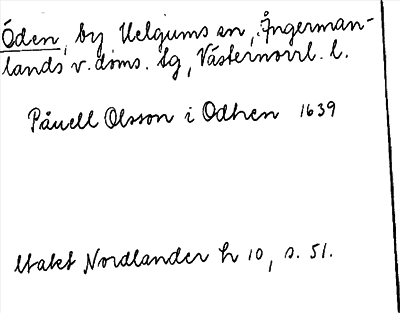 Öden, by Helgums sn, Ångerman-
lands v. doms. tg, Västernorrl. l.
Påuell Olsson i Odhen 1639
Utakt Nordlander h 10, s. 51.